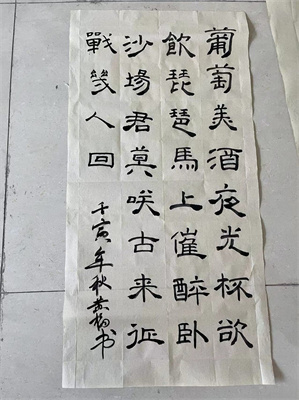 葡萄美酒夜光杯欲
飲琵琶馬上催醉卧
沙場君莫咲古来征
戰幾人回
壬寅年秋书